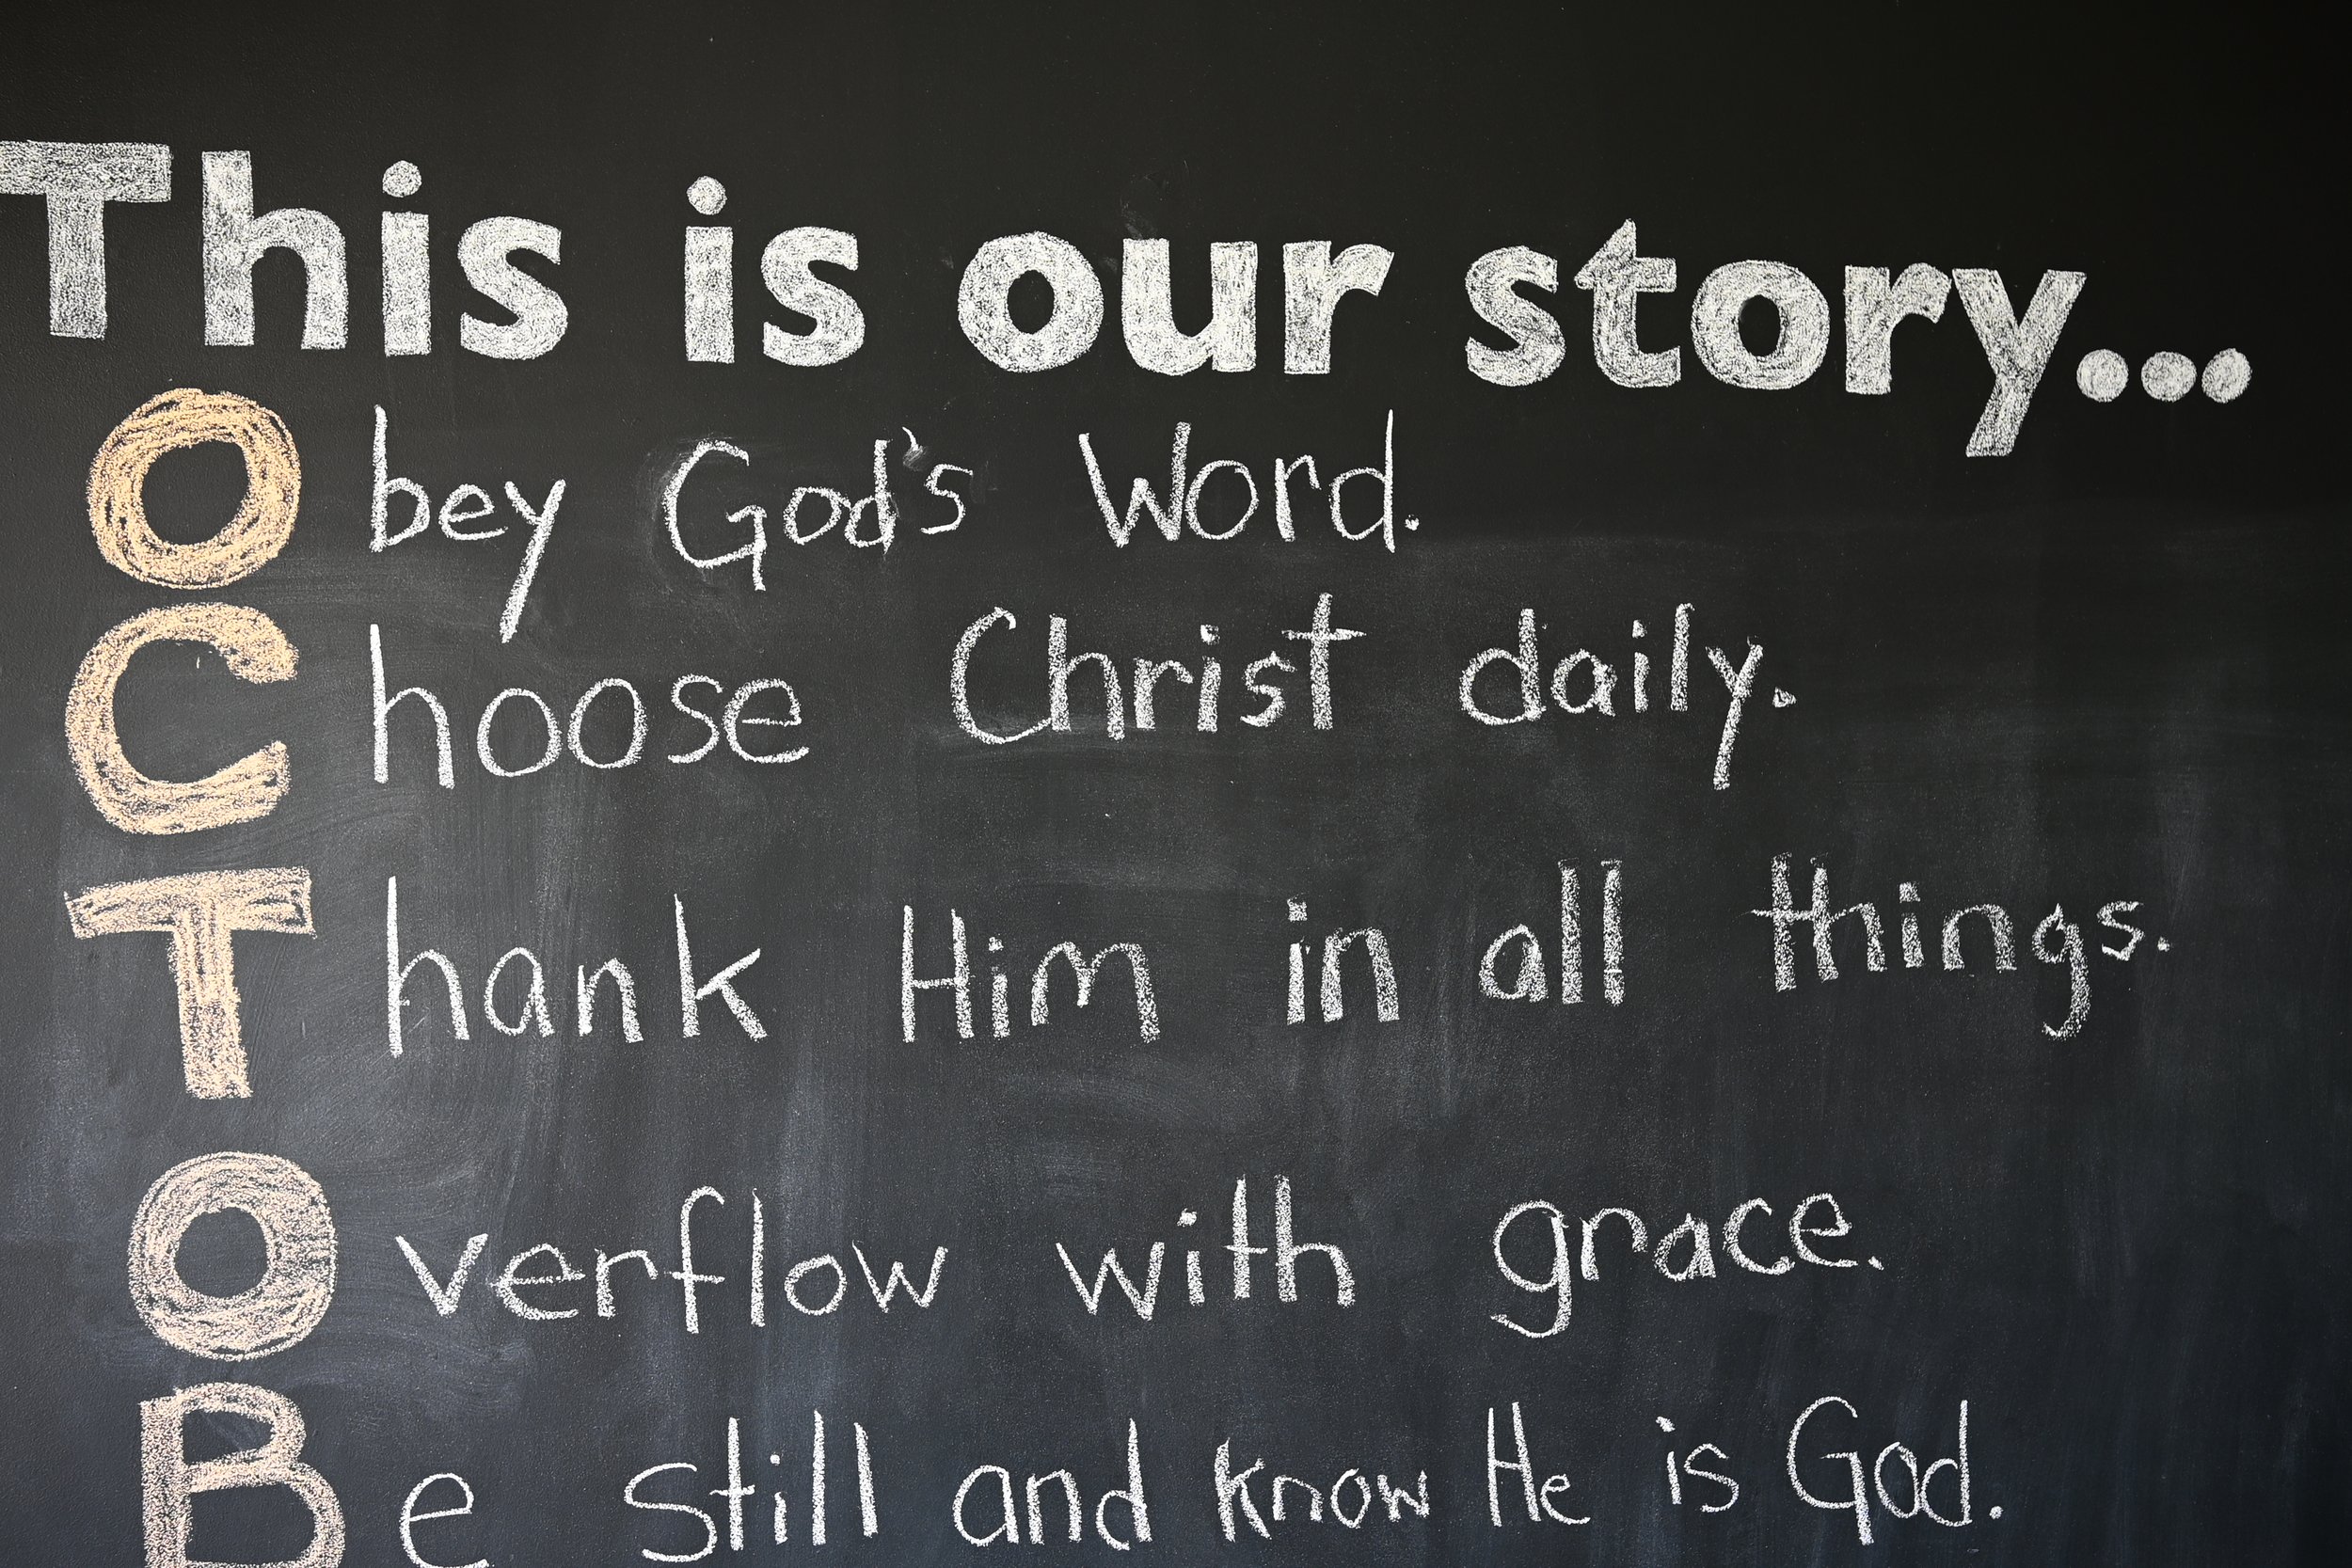 This is our story...
Obey God's Word.
Choose Christ daily.
Thank Him in all things.
Overflow with grace.
Be still and know He is God.